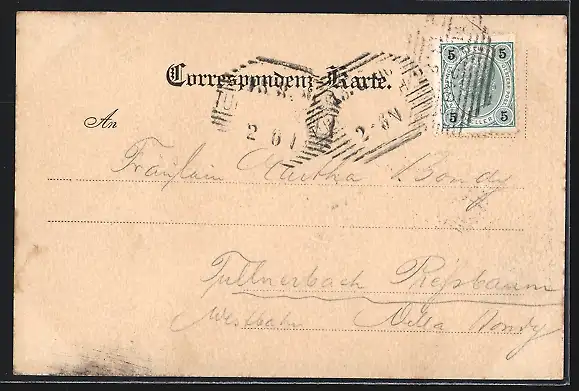 Correspondenz-Karte.
5 5
5 5
HELLER
2 6 V
2-6 N
An
Fräulein Martha Bondy
Tullnerbach Preßbaum
Westbahn Villa Bondy